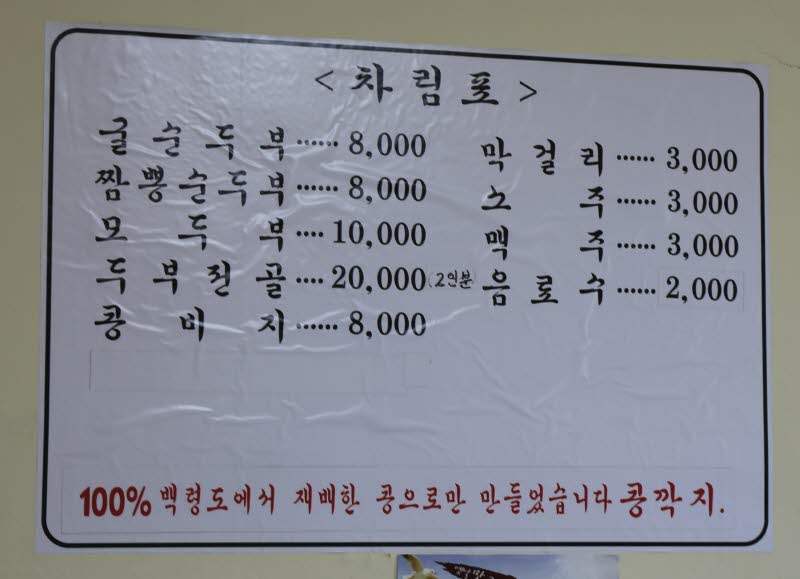 <차림표>
굴순두부 ······ 8,000
짬뽕순두부 ······ 8,000
모두부 ···· 10,000
두부전골 ···· 20,000(2인분)
콩비지 ······ 8,000
막걸리 ······ 3,000
소주 ······ 3,000
맥주 ······ 3,000
음료수 ······ 2,000
100% 백령도에서 재배한 콩으로만 만들었습니다 콩깍지.